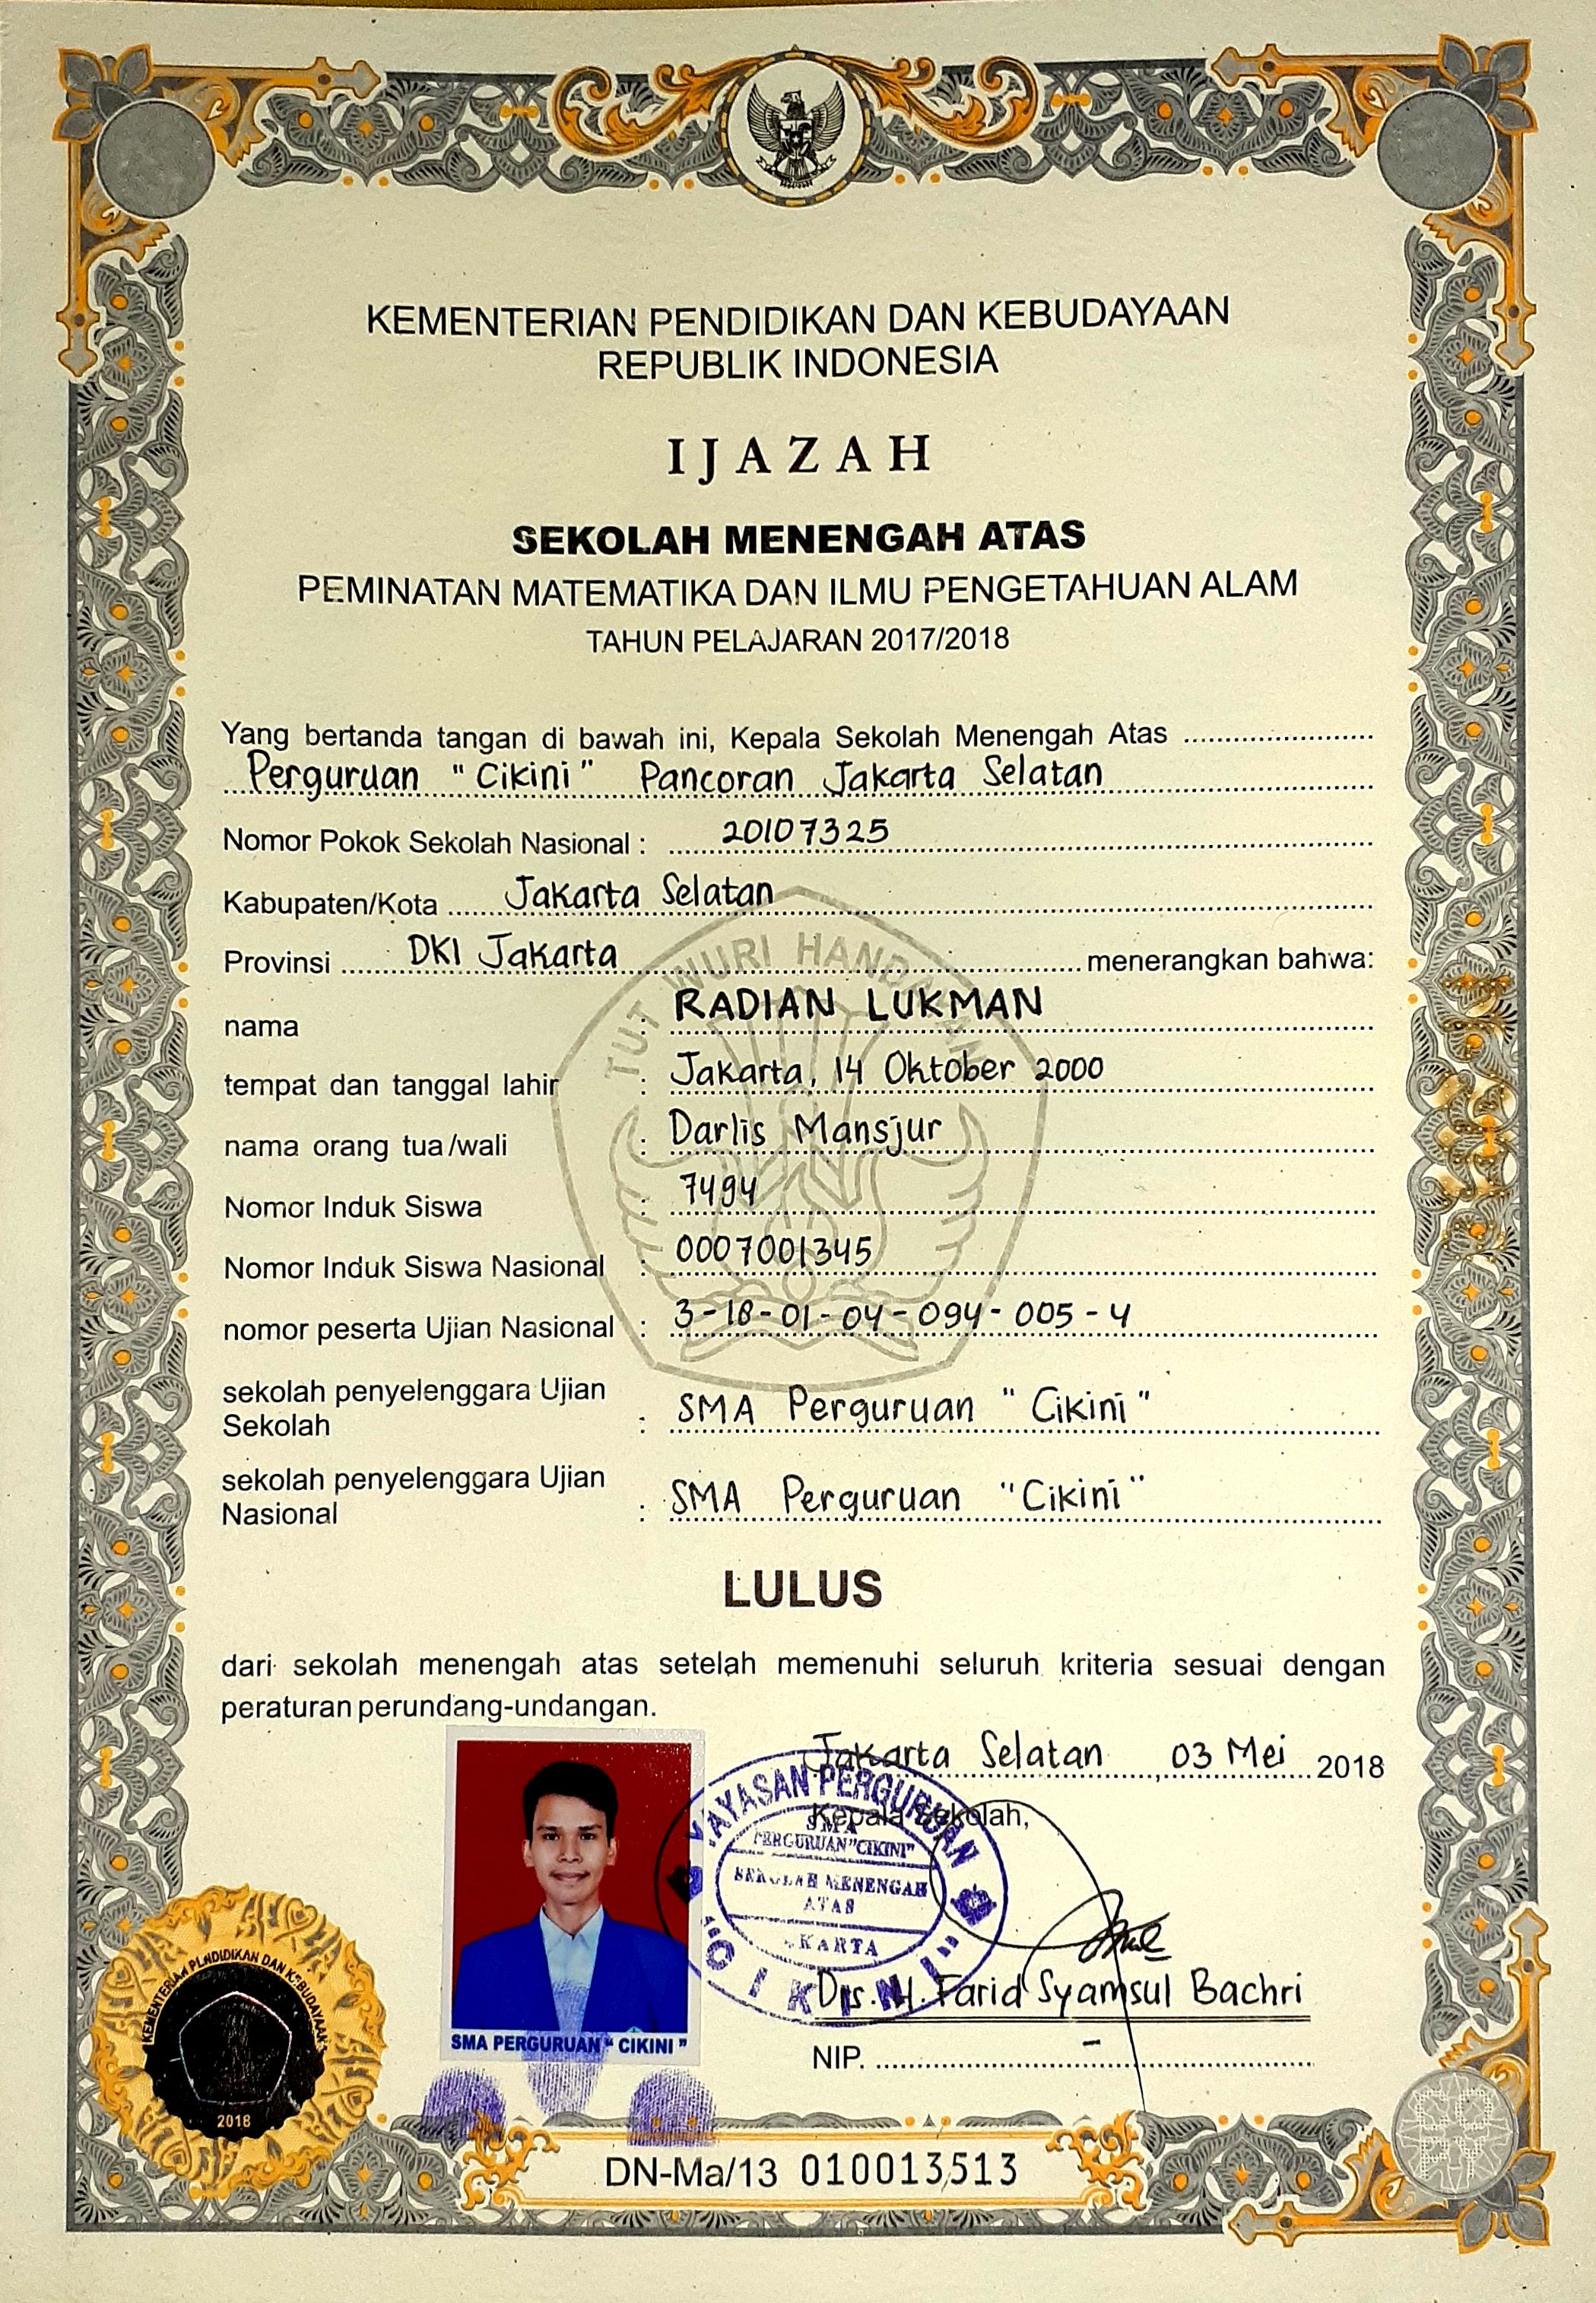 KEMENTERIAN PENDIDIKAN DAN KEBUDAYAAN
REPUBLIK INDONESIA
IJAZAH
SEKOLAH MENENGAH ATAS
PEMINATAN MATEMATIKA DAN ILMU PENGETAHUAN ALAM
TAHUN PELAJARAN 2017/2018
Yang bertanda tangan di bawah ini, Kepala Sekolah Menengah Atas
Perguruan "Cikini" Pancoran Jakarta Selatan
Nomor Pokok Sekolah Nasional : 20107325
Kabupaten/Kota Jakarta Selatan
Provinsi DKI Jakarta menerangkan bahwa:
TUT WURI HANDAYANI
nama : RADIAN LUKMAN
tempat dan tanggal lahir : Jakarta, 14 Oktober 2000
nama orang tua/wali : Darlis Mansjur
Nomor Induk Siswa : 7494
Nomor Induk Siswa Nasional : 0007001345
nomor peserta Ujian Nasional : 3-18-01-04-094-005-4
sekolah penyelenggara Ujian
Sekolah : SMA Perguruan "Cikini"
sekolah penyelenggara Ujian
Nasional : SMA Perguruan "Cikini"
LULUS
dari sekolah menengah atas setelah memenuhi seluruh kriteria sesuai dengan
peraturan perundang-undangan.
Jakarta Selatan, 03 Mei 2018
Kepala Sekolah,
YAYASAN PERGURUAN
SMA
PERGURUAN "CIKINI"
SEKOLAH MENENGAH
ATAS
"CIKINI"
Drs. H. Farid Syamsul Bachri
NIP. -
SMA PERGURUAN " CIKINI "
KEMENTERIAN PENDIDIKAN DAN KEBUDAYAAN
2018
COPY
DN-Ma/13 010013513